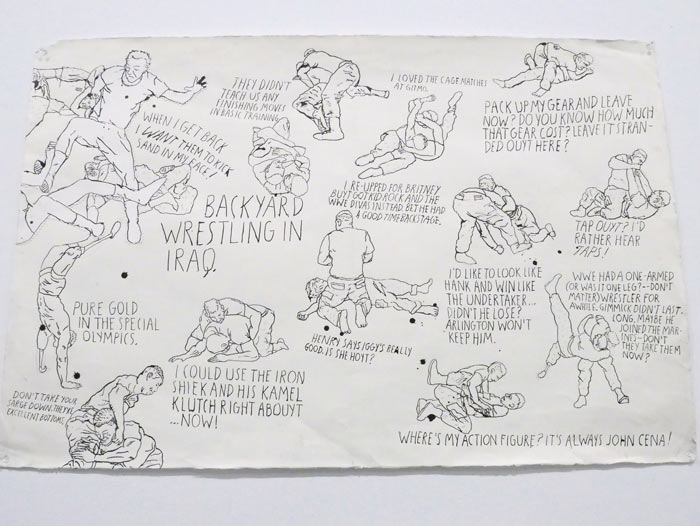 THEY DIDN'T
TEACH US ANY
FINISHING MOVES
IN BASIC TRAINING.
I LOVED THE CAGE MATCHES
AT GITMO.
PACK UP MY GEAR AND LEAVE
NOW? DO YOU KNOW HOW MUCH
THAT GEAR COST? LEAVE IT STRAN-
DED OUYT HERE?
WHEN I GET BACK
I WANT THEM TO KICK
SAND IN MY FACE.
BACKYARD
WRESTLING IN
IRAQ.
I RE-UPPED FOR BRITNEY
BUT GOT KID ROCK AND THE
WWE DIVAS INSTEAD. BET HE HAD
A GOOD TIME BACKSTAGE.
TAP OUYT? I'D
RATHER HEAR
TAPS!
I'D LIKE TO LOOK LIKE
HANK AND WIN LIKE
THE UNDERTAKER...
DIDN'T HE LOSE?
ARLINGTON WON'T
KEEP HIM.
WWE HAD A ONE-ARMED
(OR WAS IT ONE LEG?--DON'T
MATTER) WRESTLER FOR
AWHILE. GIMMICK DIDN'T LAST
LONG. MAYBE HE
JOINED THE MAR-
INES--DON'T
THEY TAKE THEM
NOW?
PURE GOLD
IN THE SPECIAL
OLYMPICS.
HENRY SAYS IGGY'S REALLY
GOOD. IS SHE HOYT?
I COULD USE THE IRON
SHIEK AND HIS KAMEL
KLUTCH RIGHT ABOUYT
...NOW!
DON'T TAKE YOUR
SARGE DOWN.
EXCELLENT BOTTOMS.
WHERE'S MY ACTION FIGURE? IT'S ALWAYS JOHN CENA!